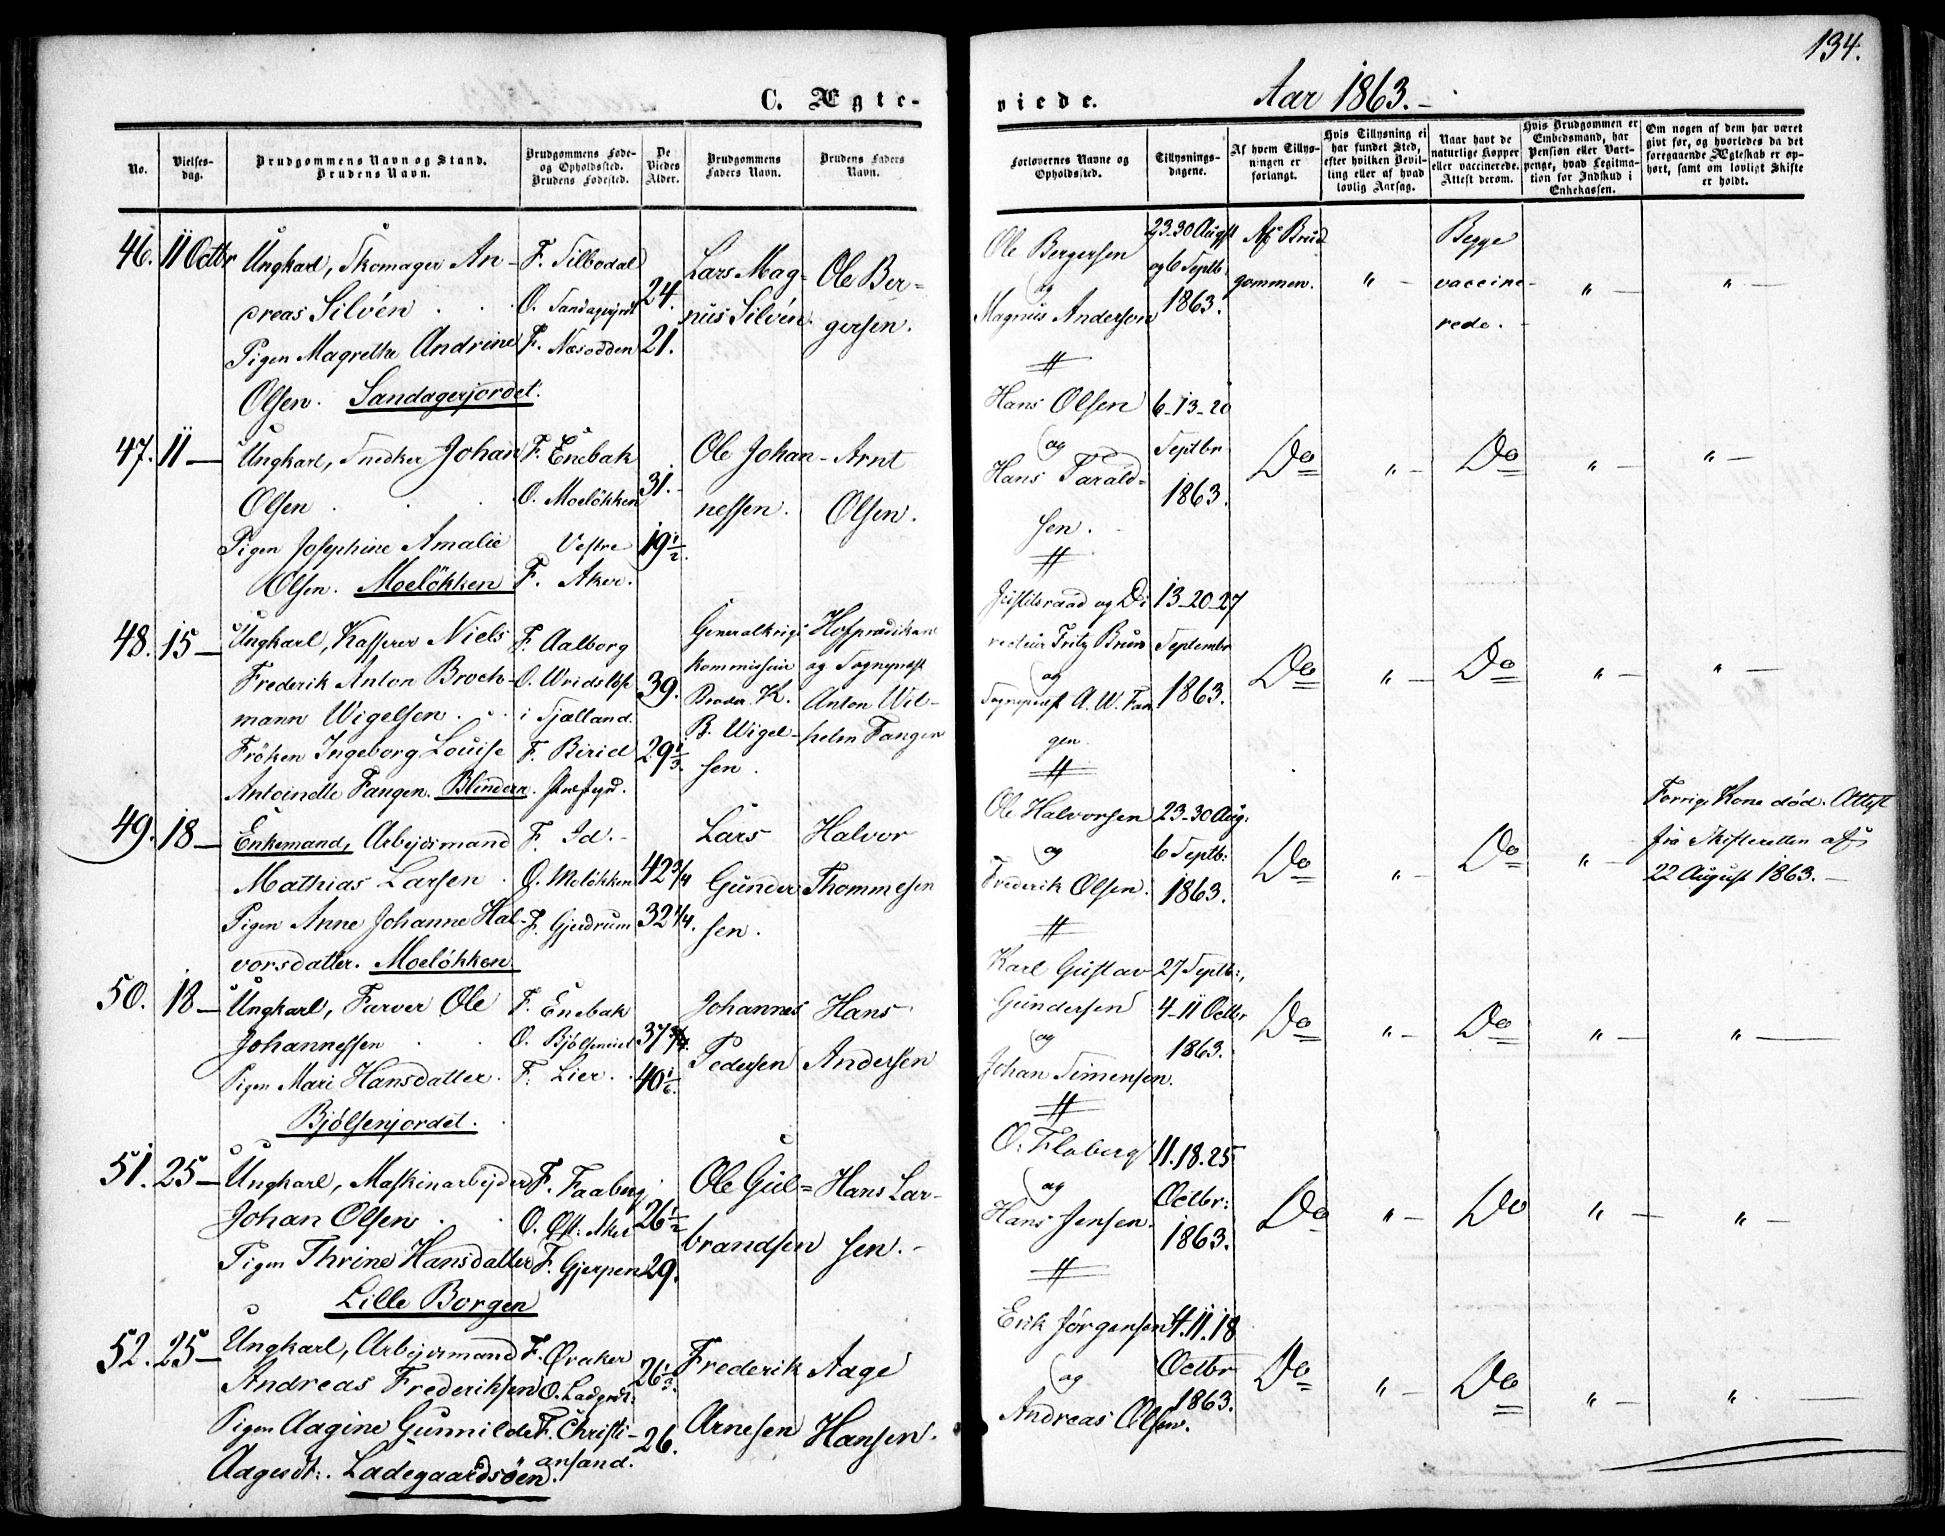 134.
C. Ægte-
viede.
Aar 1863.
No.
Vielses-
dag.
Brudgommens Navn og Stand.
Brudens Navn.
Brudgommens Føde-
og Opholdssted.
Brudens Fødested.
De
Viedes
Alder.
Brudgommens
Faders Navn.
Brudens Faders
Navn.
Forlovernes Navne og
Opholdssted.
Tillysnings-
dagene.
Af hvem Tillys-
ningen er
forlangt.
Hvis Tillysning ei
har fundet Sted,
efter hvilken Bevil-
ling eller af hvad
lovlig Aarsag.
Naar havt de
naturlige Kopper
eller vaccinerede.
Attest derom.
Hvis Brudgommen er
Embedsmand, har
Pension eller Vart-
penge, hvad Legitima-
tion for Indskud i
Enkekassen.
Om nogen af dem har været
givt før, og hvorledes da det
foregaaende Ægteskab er op-
hørt, samt om lovligt Skifte
er holdt.
46. 11 Octbr
Ungkarl, Skomager An-
dreas Silvén
Pigen Magrethe Andrine
Olsen. Sandagerjordet.
F. Silbodal
O. Sandagerjordt
F. Næsodden
24.
21.
Lars Mag-
nus Silvén.
Ole Ber-
gersen.
Ole Bergersen
og
Magnus Anderson
23-30 Augst
og 6 Septb:
1863.
Af Brud
gommen.
" -
Begge
vaccine-
rede.
" -
" -
47. 11 -
Ungkarl, Snedker Johan
Olsen
Pigen Josephine Amalie
Olsen. Moeløkken
F. Enebak
O. Moeløkken
Vestre
F. Aker.
31.
19 1/2.
Ole Johan-
nessen.
Arnt
Olsen.
Hans Olsen
og
Hans Tarald-
sen.
6-13-20
Septbr
1863.
Do
" -
Do
" -
" -
48. 15 -
Ungkarl, Kasserer Niels
Frederik Anton Broch-
mann Wigelsen.
Frøken Ingeborg Louise
Antoinette Fangen. Blindern.
F. Aalborg
O. Wridsløse
i Sjælland.
F. Birid
Præstegd.
39.
29 1/3.
Generalkrigs
kommissair
K.
B. Wigel-
sen.
Hofprædikan
og Sognepræst
Anton Wil-
helm Fangen
Justitsraad og Di
recteur Fritz Bruun
og
Sognepræst A. W. Fan
gen.
13-20-27
Septembr
1863.
Do
" -
Do
" -
" -
49. 18 -
Enkemand, Arbejdsmand
Mathias Larsen
Pigen Anne Johanne Hal-
vorsdatter. Moeløkken
F. Id.
O. Moløkken
F. Gjerdrum
42 3/4
32 1/4.
Lars
Gunder
sen.
Halvor
Thommesen
Ole Halvorsen
og
Frederik Olsen.
23-30 Aug:
6 Septb:
1863.
Do
" -
Do
" -
Forrige Kone død. Attest
fra Skifteretten af
22 August 1863. -
50. 18 -
Ungkarl, Farver Ole
Johannessen
Pigen Mari Hansdatter.
Bjølsenjordet.
F. Enebak
O. Bjølsenjordet
F. Lier.
37 3/4.
40 1/6.
Johannes
Pedersen
Hans
Andersen
Karl Gustav
Gundersen
og
Johan Simensen.
27 Septb:,
4-11 Octbr
1863.
Do
" -
Do
" -
" -
51. 25 -
Ungkarl, Maskinarbejder
Johan Olsen
Pigen Thrine Hansdatter
Lille Borgen
F. Faaberg
O. Øst: Aker
F. Gjerpen
26 1/2
29.
Ole Gul=
brandsen
Hans Lar-
sen. -
O. Floberg
og
Hans Jensen.
11.18.25
Octbr:
1863.
Do
" -
Do
" -
" -
52. 25 -
Ungkarl, Arbejdsmand
Andreas Frederiksen
Pigen Aagine Gunnilde
Aagesdt:. Ladegaardsøen.
F. Øraker
O. Ladegrds:
F. Christi-
ansand.
26 1/3.
26.
Frederik
Arnesen
Aage
Hansen.
Erik Jørgensen
og
Andreas Olsen.
4.11.18
Octbr
1863.
Do
" -
Do
" -
" -